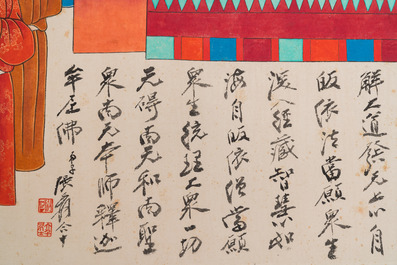 解大道發无上心自
皈依法當願眾生
深入經藏智慧如
海自皈依僧當願
眾生統理大眾一切
无碍南无和南聖
眾南无本師釋迦
牟尼佛
張爰合十